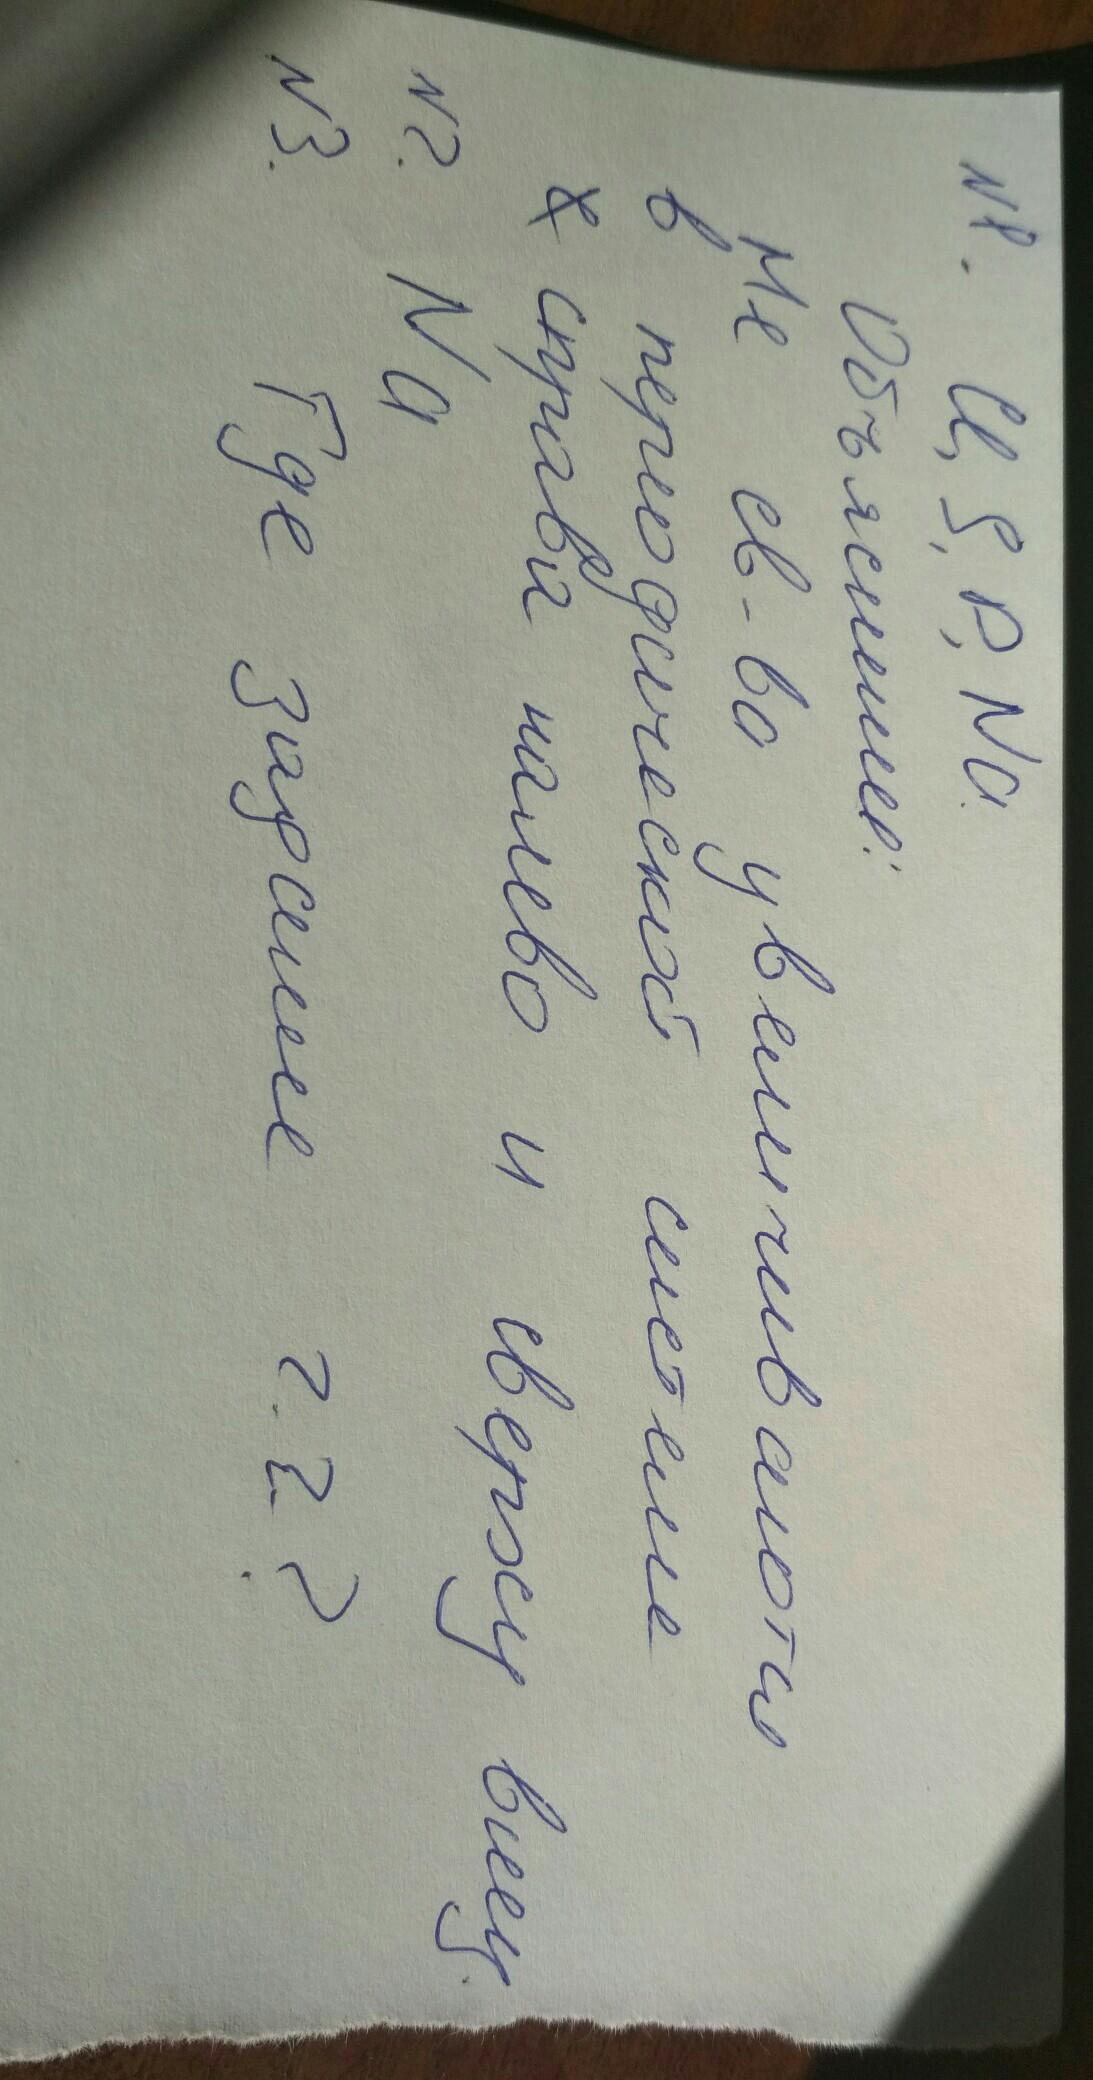 N1. Cl, S, P, Na.
Объяснение:
Ме св-ва увеличиваются
в периодической системе
справа налево и сверху вниз.
N2. Na
N3. Где задание ???